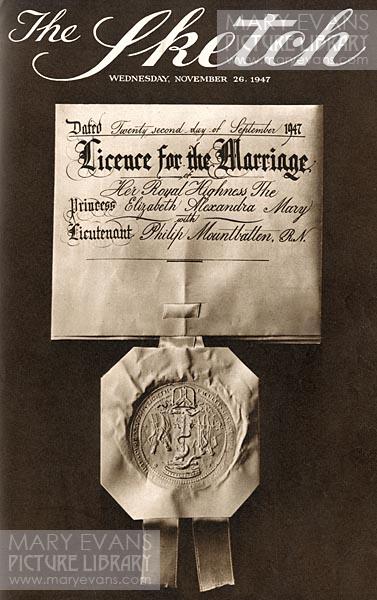 The Sketch
WEDNESDAY, NOVEMBER 26, 1947
MARY EVANS
PICTURE LIBRARY
www.maryevans.com
Dated Twenty second day of September 1947
Licence for the Marriage
of
Her Royal Highness The
Princess Elizabeth Alexandra Mary
with
Lieutenant Philip Mountbatten, R.N.
MARY EVANS
PICTURE LIBRARY
www.maryevans.com